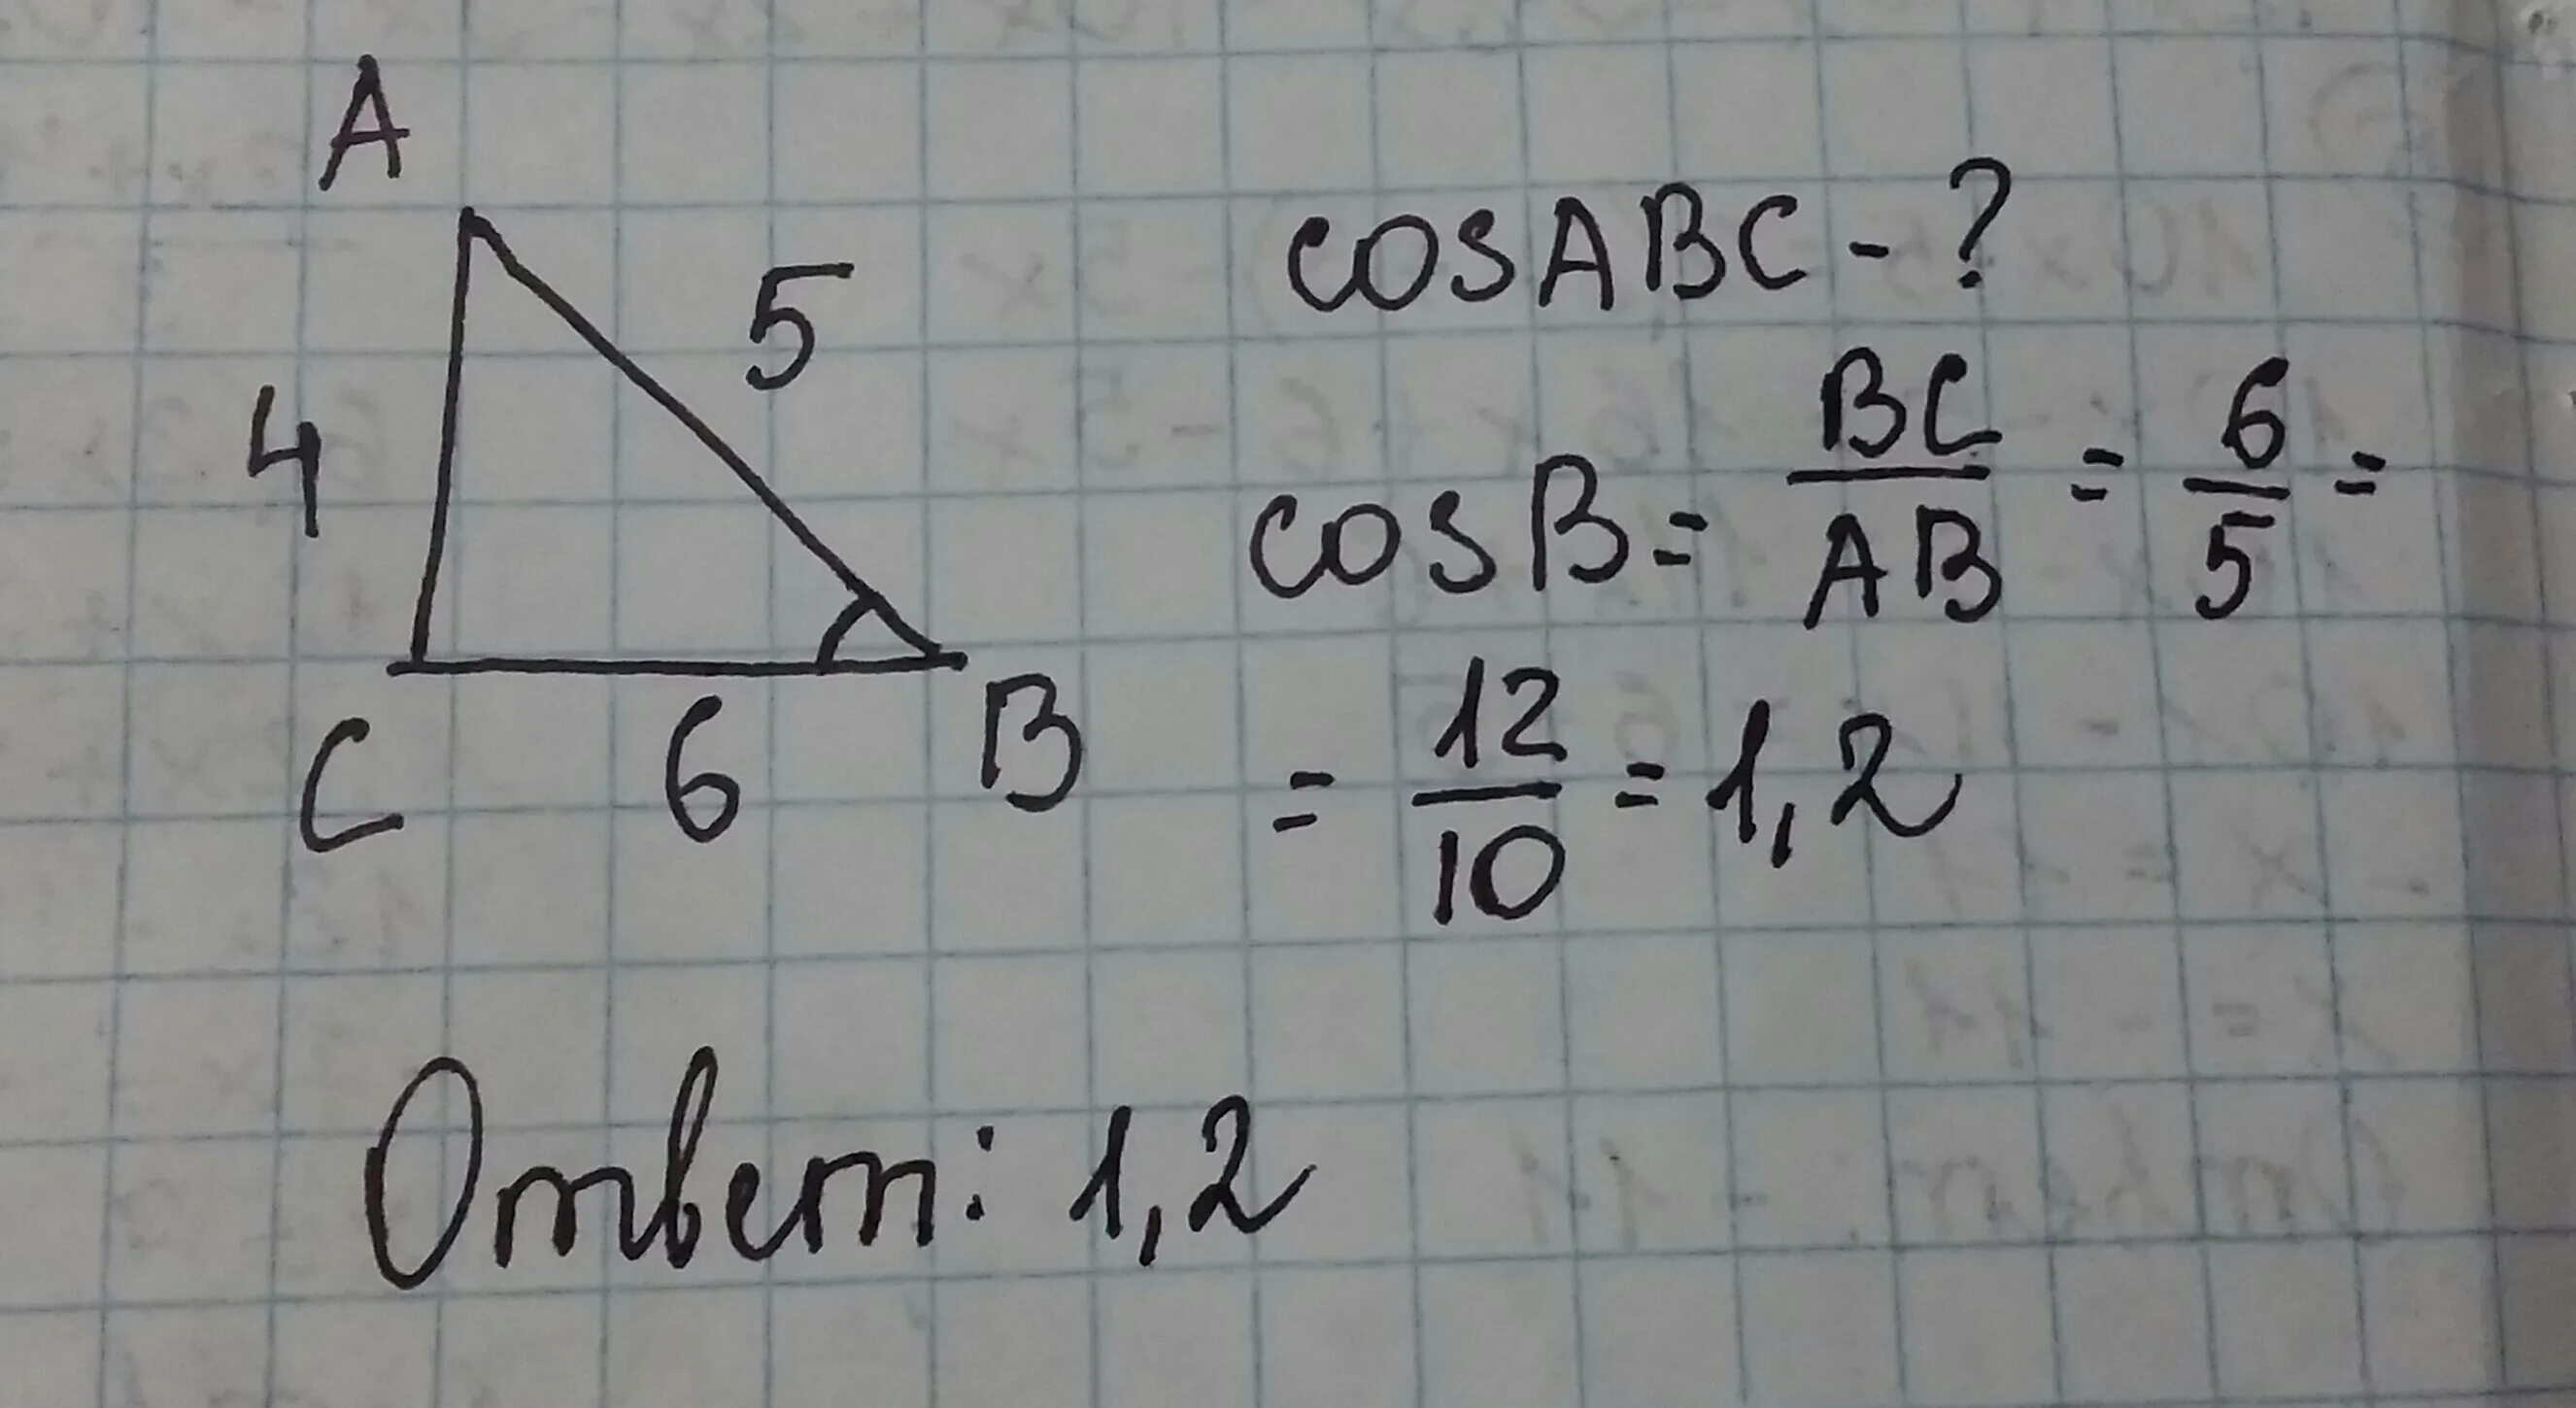 A
5
4
C
6
B
cosABC - ?
cosB = BC/AB = 6/5 =
= 12/10 = 1,2
Ответ: 1,2